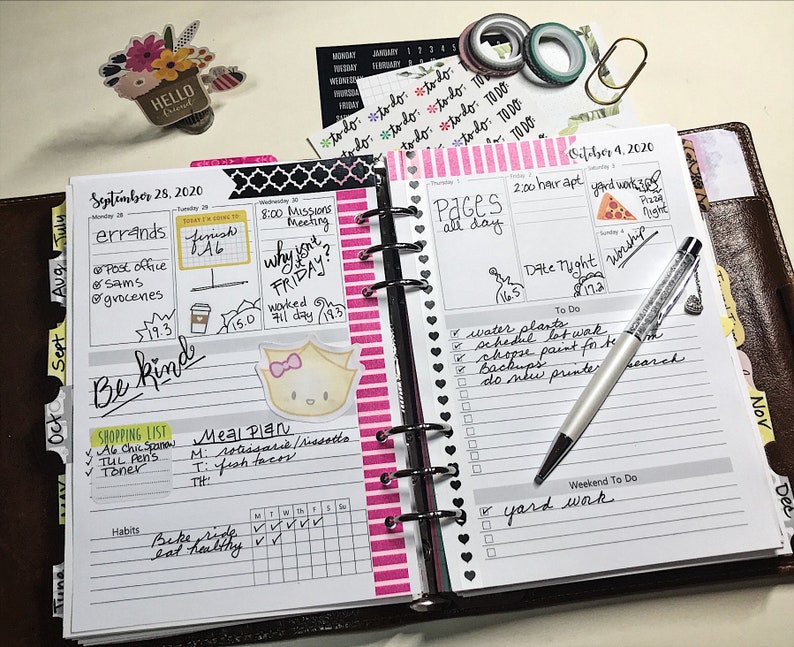 HELLO
friend
MONDAY JANUARY 1 2 3 4
TUESDAY FEBRUARY
WEDNESDAY
THURSDAY
FRIDAY
to do: to do: to do: TO DO
to do: to do: to do: TO DO
to do: to do: to do: TO DO
July
Aug
Sept
Oct
June
Nov
Dec
September 28, 2020
Monday 28
errands
Post office
Sams
groceries
19.3
Tuesday 29
TODAY I'M GOING TO
finish
A6
15.0
Wednesday 30
8:00 Missions
Meeting
why isn't
it
FRIDAY?
worked
7-11 day
Be kind
SHOPPING LIST
A6 Chic Sparrow
TUL Pens
Toner
Meal Plan
M: rotissarie/rissotto
T: fish tacos
TH:
Habits M T W Th F S Su
Bike ride
eat healthy
October 4, 2020
Thursday 1
PAGES
all day
16.5
Friday 2
2:00 hair apt
Date Night
17.2
yard work
Pizza
Night
Sunday 4
worship
To Do
water plants
schedul lab work
choose paint for
Backups
do new printer research
Weekend To Do
yard work